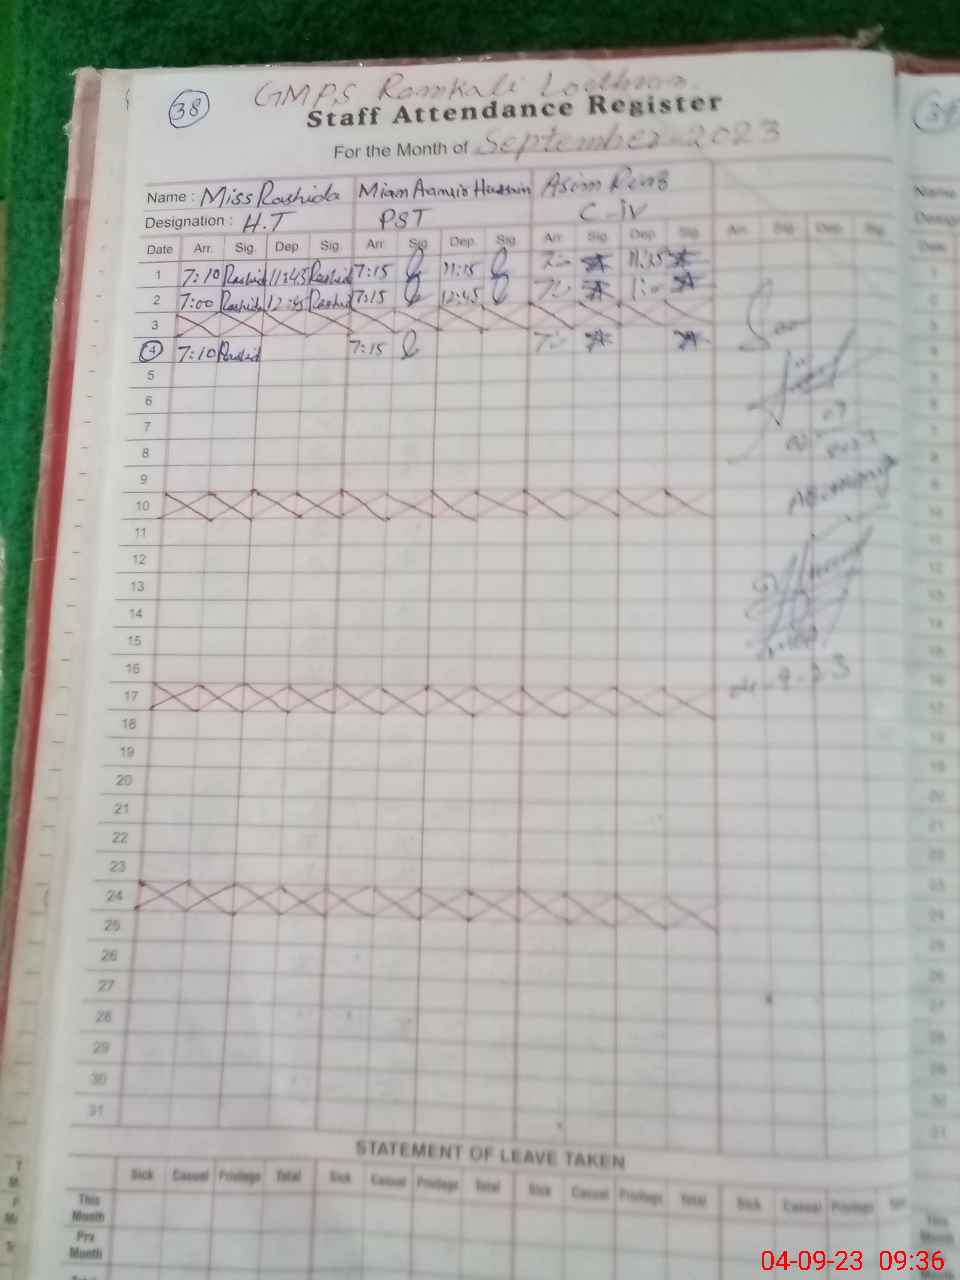 38
GMPS Ramkali Lodhran
Staff Attendance Register
For the Month of September-2023
Name : Miss Rashida Miam Aamir Hussain Asim
Designation : H.T PST C-iv
Date Arr. Sig. Dep. Sig. Arr. Sig. Dep. Sig. Arr. Sig. Dep. Sig. Arr. Sig. Dep. Sig.
1 7:10 Rashid 11:45 Rashid 7:15 11:15 11:15
2 7:00 Rashid 12:45 Rashid 7:15 12:45
3
4 7:10 Rashid 7:15
5
6
7
8
9
10
11
12
13
14
15
16
17
18
19
20
21
22
23
24
25
26
27
28
29
30
31
STATEMENT OF LEAVE TAKEN
Sick Casual Privilege Total Sick Casual Privilege Total Sick Casual Privilege Total Sick Casual Privilege
This Month
Prx Month
04-09-23 09:36